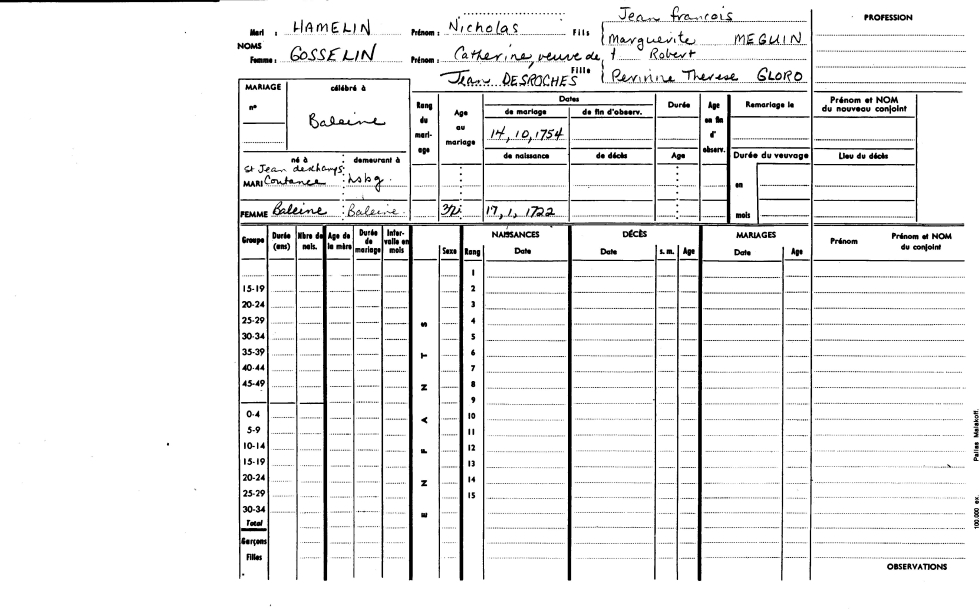 Jean francois
Mari : HAMELIN Prénom : Nicholas Fils Marguerite MEGUIN
NOMS
Femme : GOSSELIN Prénom : Catherine, veuve de † Robert
Jean DESROCHES Fille Perinine Therese GLORO
PROFESSION
MARIAGE célébré à
n° Baleine
né à demeurant à
St Jean deschamps
MARI Coutance hsbg.
FEMME Baleine Baleine
Rang du mariage
Age au mariage
Dates
de mariage de fin d'observ.
14, 10, 1754
de naissance de décès
17, 1, 1722
Durée
Age
Age en fin d' observ.
Remariage le
Durée du veuvage
en
mois
Prénom et NOM du nouveau conjoint
Lieu du décès
Groupe Durée (ans) Nbre de nais. Age de la mère Durée de mariage Intervalle en mois
ENFANTS
Sexe Rang
NAISSANCES DÉCÈS MARIAGES
Date Date s. m. Age Date Age Prénom Prénom et NOM du conjoint
1
15-19 2
20-24 3
25-29 4
30-34 5
35-39 6
40-44 7
45-49 8
9
0-4 10
5-9 11
10-14 12
15-19 13
20-24 14
25-29 15
30-34
Total
Garçons
Filles
OBSERVATIONS
100,000 ex. Pallas Malakoff.